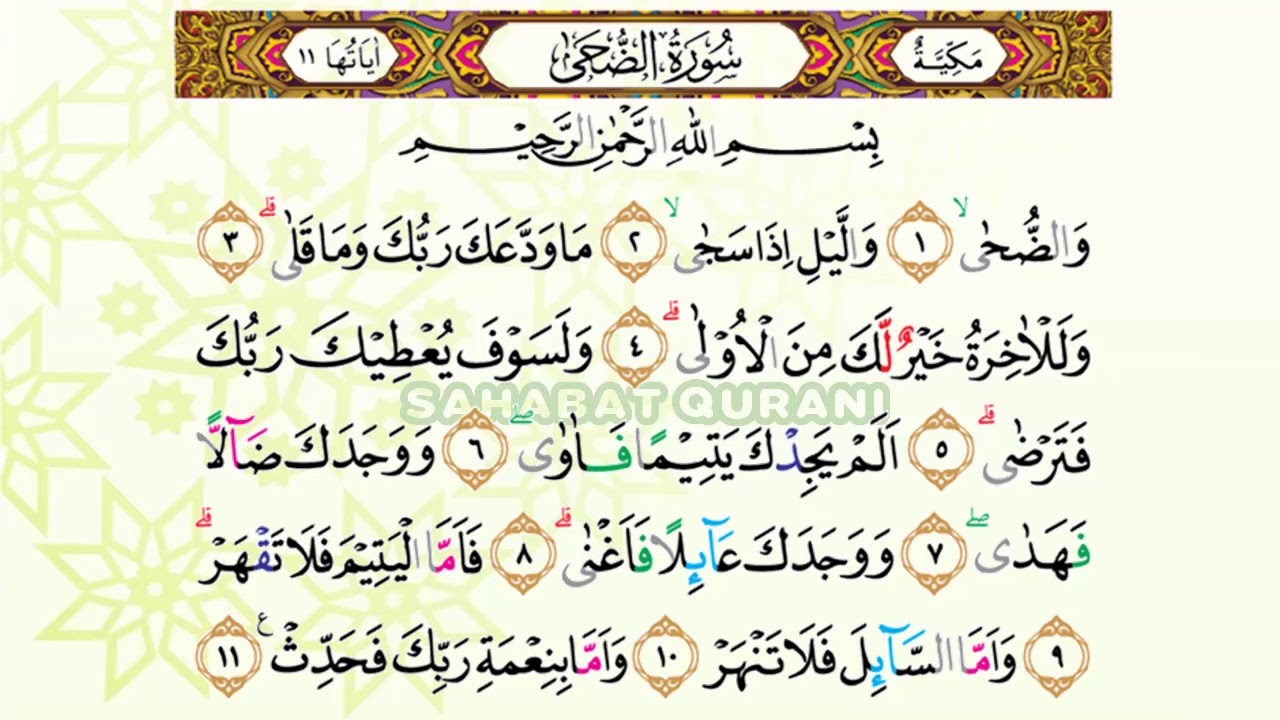 مَكِّيَّةٌ سُورَةُ الضُّحَىٰ اٰيَاتُهَا ١١
بِسْمِ اللّٰهِ الرَّحْمٰنِ الرَّحِيْمِ
وَالضُّحٰىۙ ١ وَالَّيْلِ اِذَا سَجٰىۙ ٢ مَا وَدَّعَكَ رَبُّكَ وَمَا قَلٰىۗ ٣
وَلَلْاٰخِرَةُ خَيْرٌ لَّكَ مِنَ الْاُوْلٰىۗ ٤ وَلَسَوْفَ يُعْطِيْكَ رَبُّكَ
SAHABAT QURANI
فَتَرْضٰىۗ ٥ اَلَمْ يَجِدْكَ يَتِيْمًا فَاٰوٰىۖ ٦ وَوَجَدَكَ ضَاۤلًّا
فَهَدٰىۖ ٧ وَوَجَدَكَ عَاۤىِٕلًا فَاَغْنٰىۗ ٨ فَاَمَّا الْيَتِيْمَ فَلَا تَقْهَرْۗ
٩ وَاَمَّا السَّاۤىِٕلَ فَلَا تَنْهَرْ ١٠ وَاَمَّا بِنِعْمَةِ رَبِّكَ فَحَدِّثْ ࣖ ١١